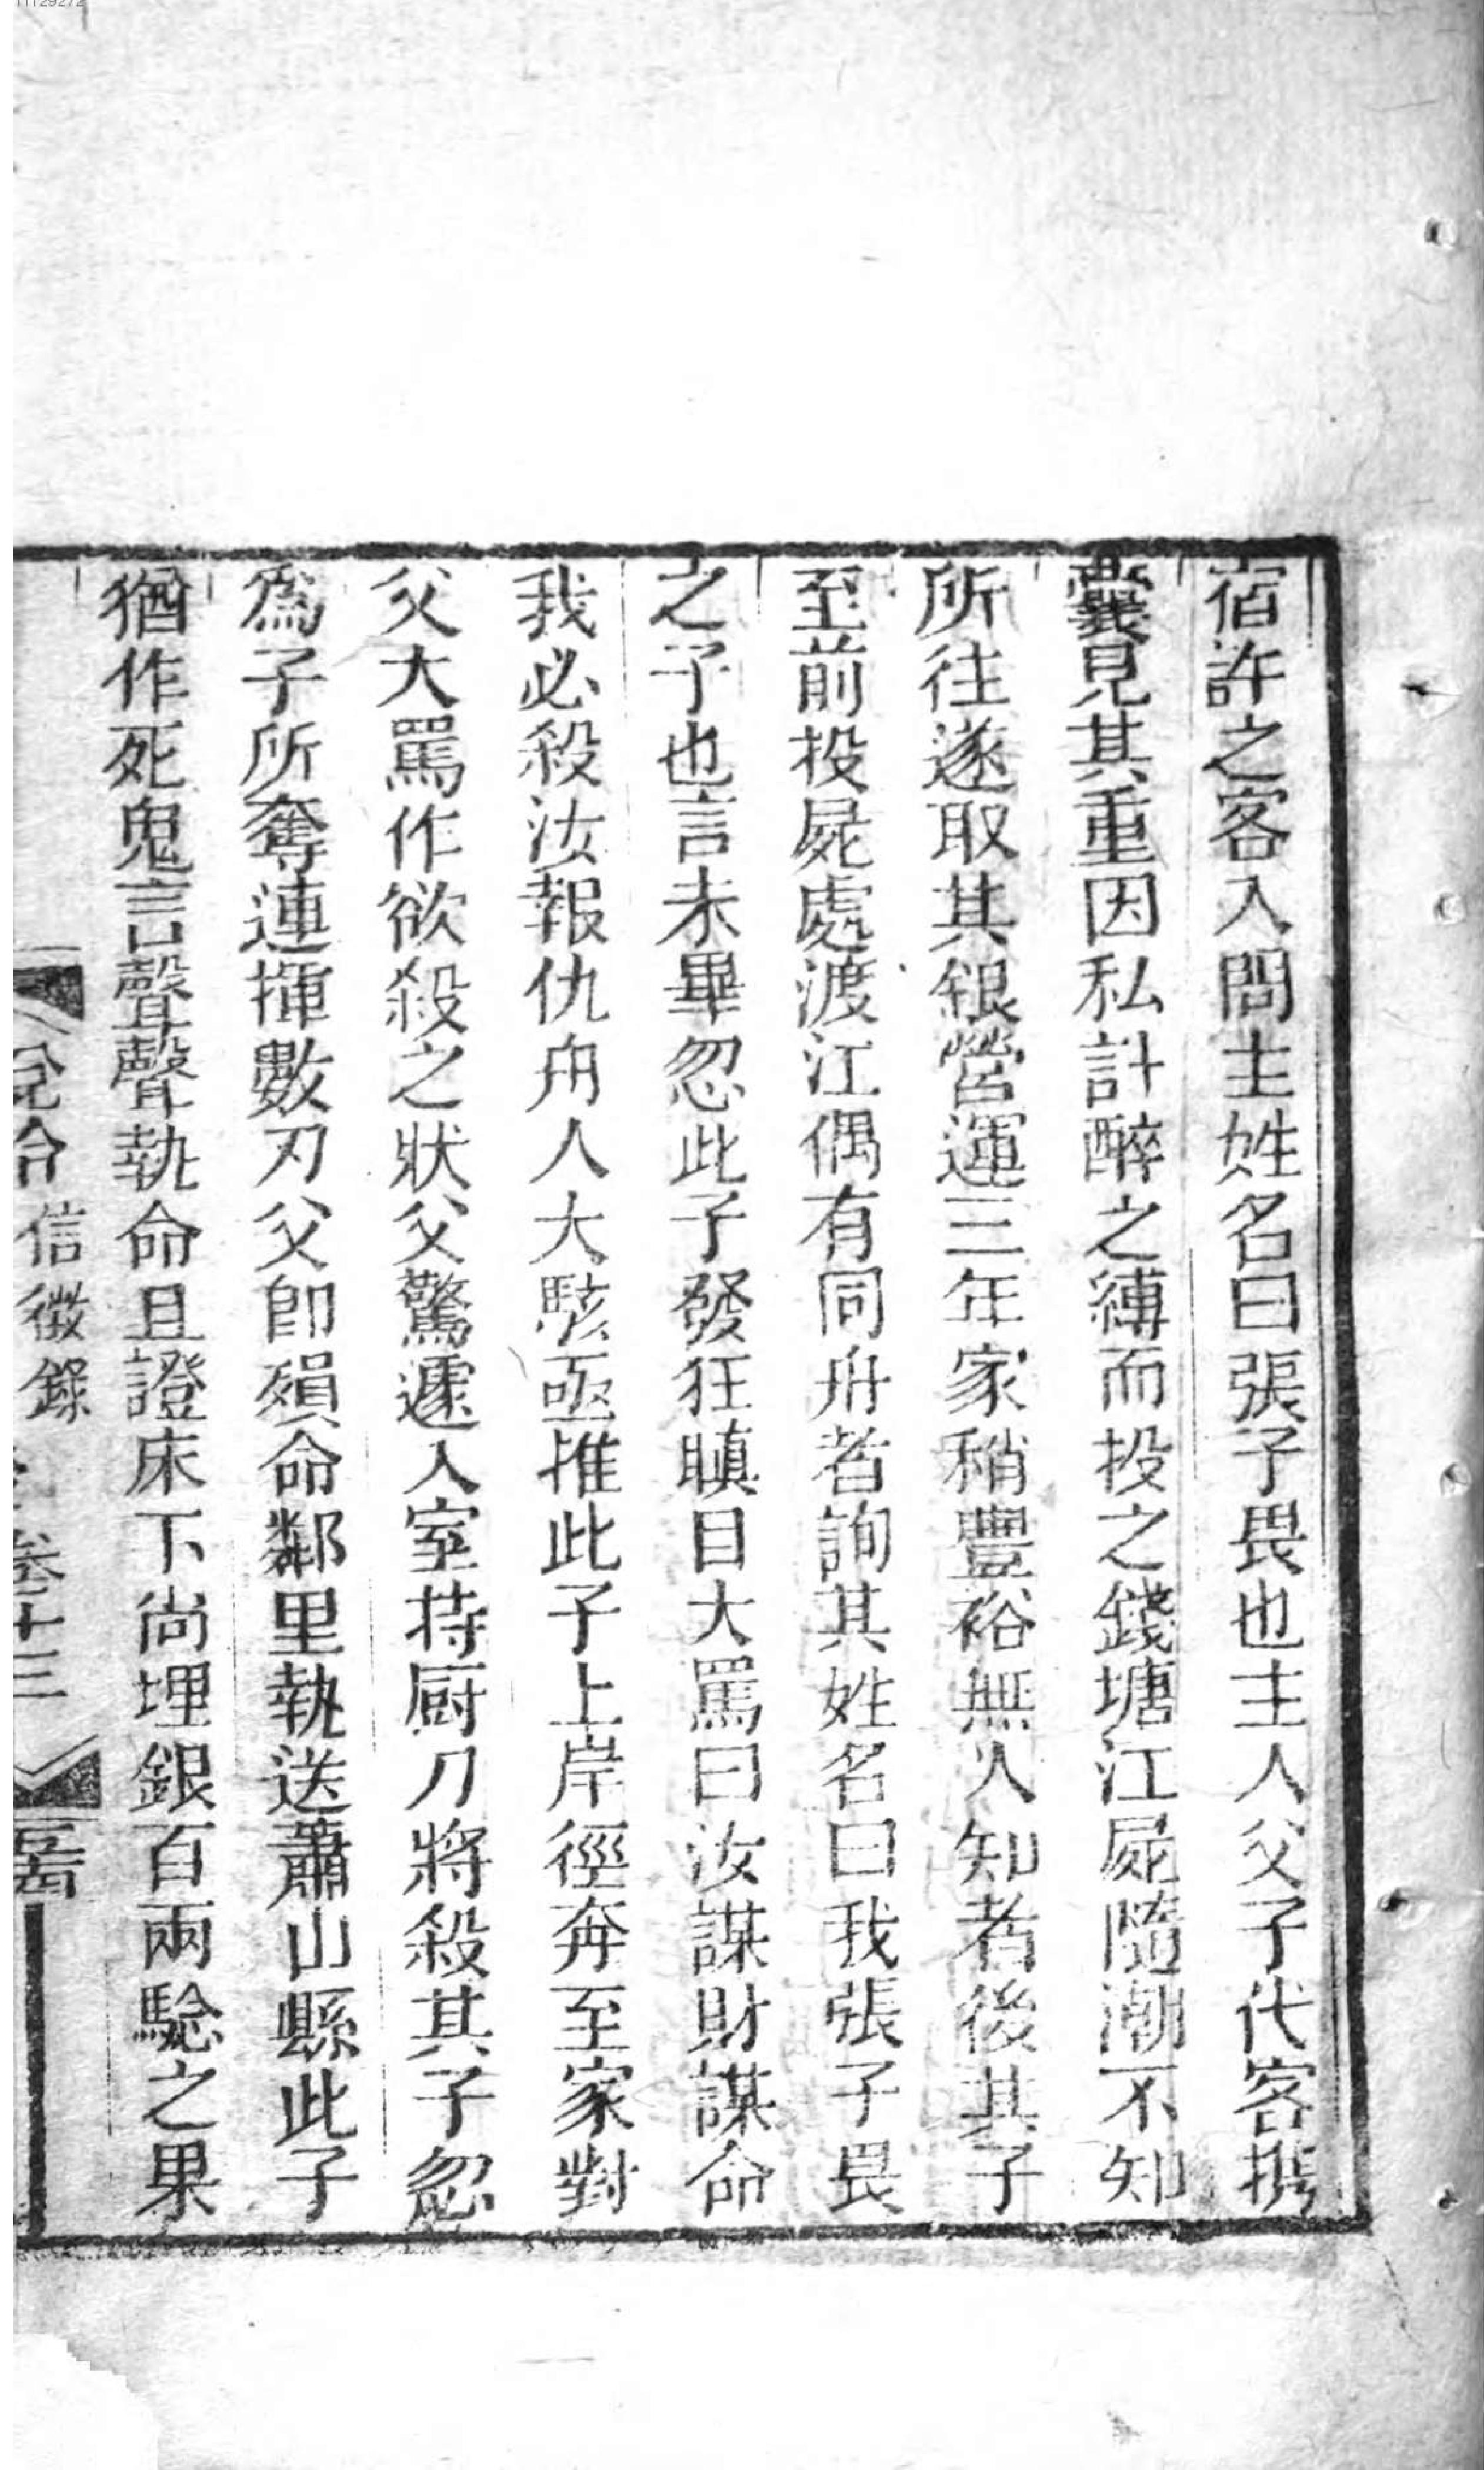 宿許之客入問主姓名曰張子畏也主人父子代客携
囊見其重因私計醉之縛而投之錢塘江屍隨潮不知
所往遂取其銀營運三年家稍豐裕無人知者後其子
至前投屍處渡江偶有同舟者詢其姓名曰我張子畏
之子也言未畢忽此子發狂瞋目大罵曰汝謀財謀命
我必殺汝報仇舟人大駭亟推此子上岸徑奔至家對
父大罵作欲殺之狀父驚遽入室持厨刀將殺其子忽
爲子所奪連揮數刃父卽殞命鄰里執送蕭山縣此子
猶作死鬼言聲聲執命且證床下尚埋銀百兩驗之果
信徵錄 卷十三
11129272